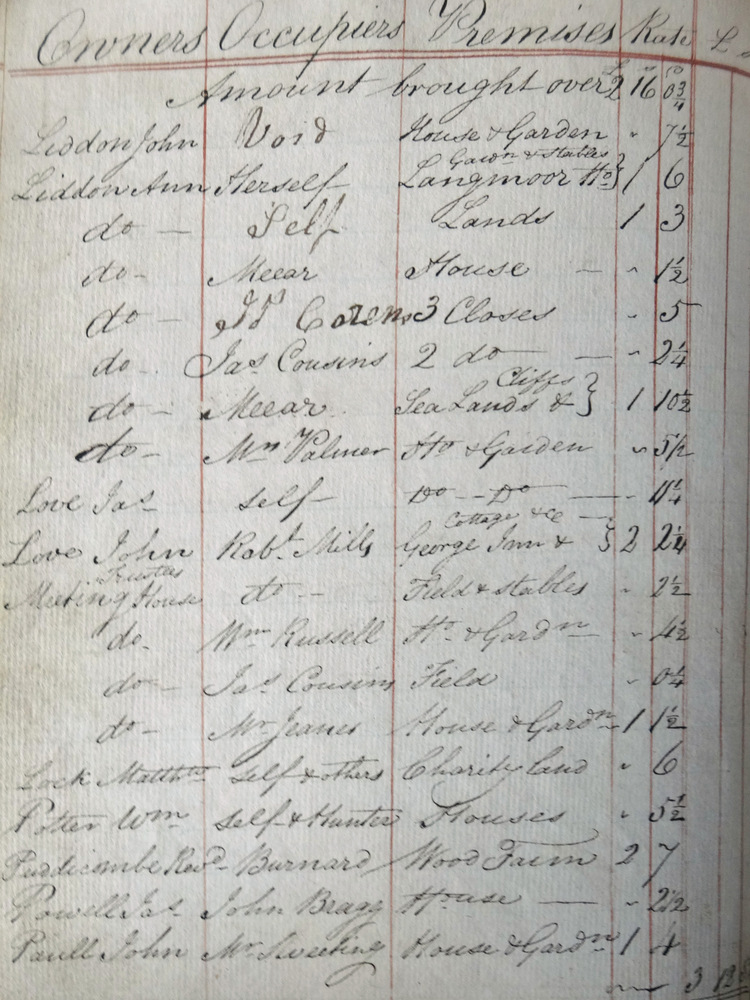 Owners Occupiers Premises Rate £
Amount brought over 2 16 0¾
Liddon John Void House & Garden " 7½
Gardn & Stables
Liddon Ann Herself Langmoor Ho } 1 6
do — Self Lands 1 3
do - Meear House — " 1½
do — 3 Closes " 5
do - Jas Cousins 2 do — " 2¼
Cliffs
do — Meear Sea Lands & } 1 10½
do - Palmer Ho & Garden " 5½
Love Jas self Do -- Do —
Cottage &c
Love John Robt Mills George Inn & } 2 2¼
Trustees
Meeting House do - Field & stables " 2½
do - Wm Russell Ho & Gardn — " 4½
do — Jas Cousins Field " 0¼
do - Mr Jeanes House & Gardn 1 1½
Lock Matthw self & others Charity land " 6
Potter Wm self & Hunter Houses " 5½
Puddicombe Revd Burnard Wood Farm 2 7
Powell Jas John Bragg House — " 2½
Paull John Mr Sweeting House & Gardn 1 4
3